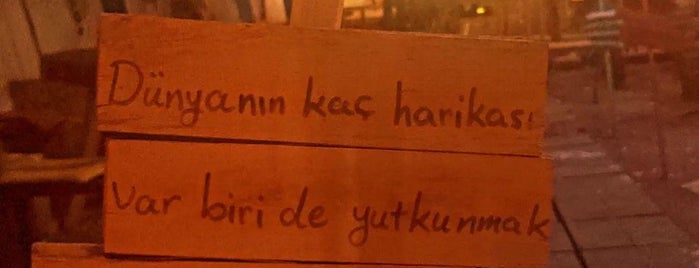 Dünyanın kaç harikası
var biri de yutkunmak